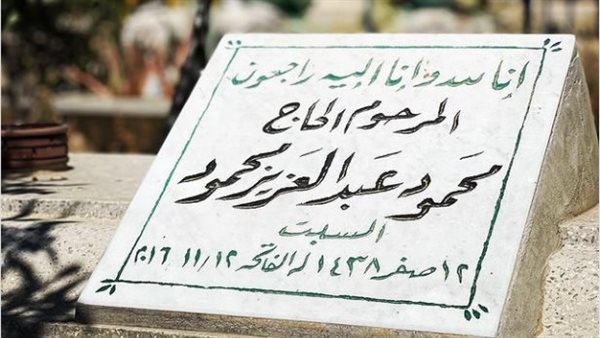 إنا لله وإنا إليه راجعون
المرحوم الحاج
محمود عبد العزيز محمود
السبت
١٢ صفر ١٤٣٨ له الفاتحة ٢٠١٦/١١/١٢